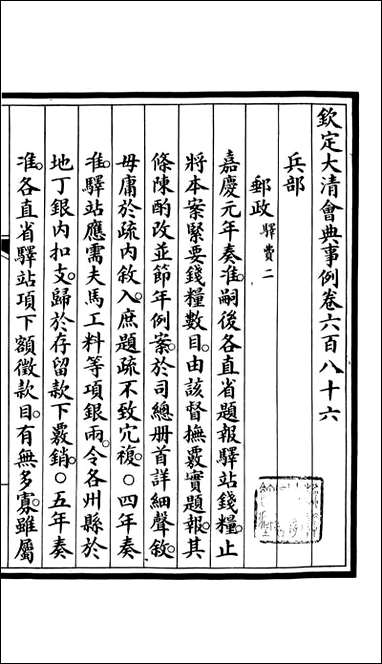 欽定大清會典事例卷六百八十六
兵部
郵政驛費二
嘉慶元年奏准。嗣後各直省題報驛站錢糧。止
將本案緊要錢糧數目。由該督撫覈實題報。其
條陳酌改並節年例案。於司總册首詳細聲敘。
毋庸於疏內敘入。庶題疏不致冗複。○四年奏
准。驛站應需夫馬工料等項銀兩。令各州縣於
地丁銀內扣支。歸於存留款下覈銷。○五年奏
准。各直省驛站項下額徵款目。有無多寡。雖屬